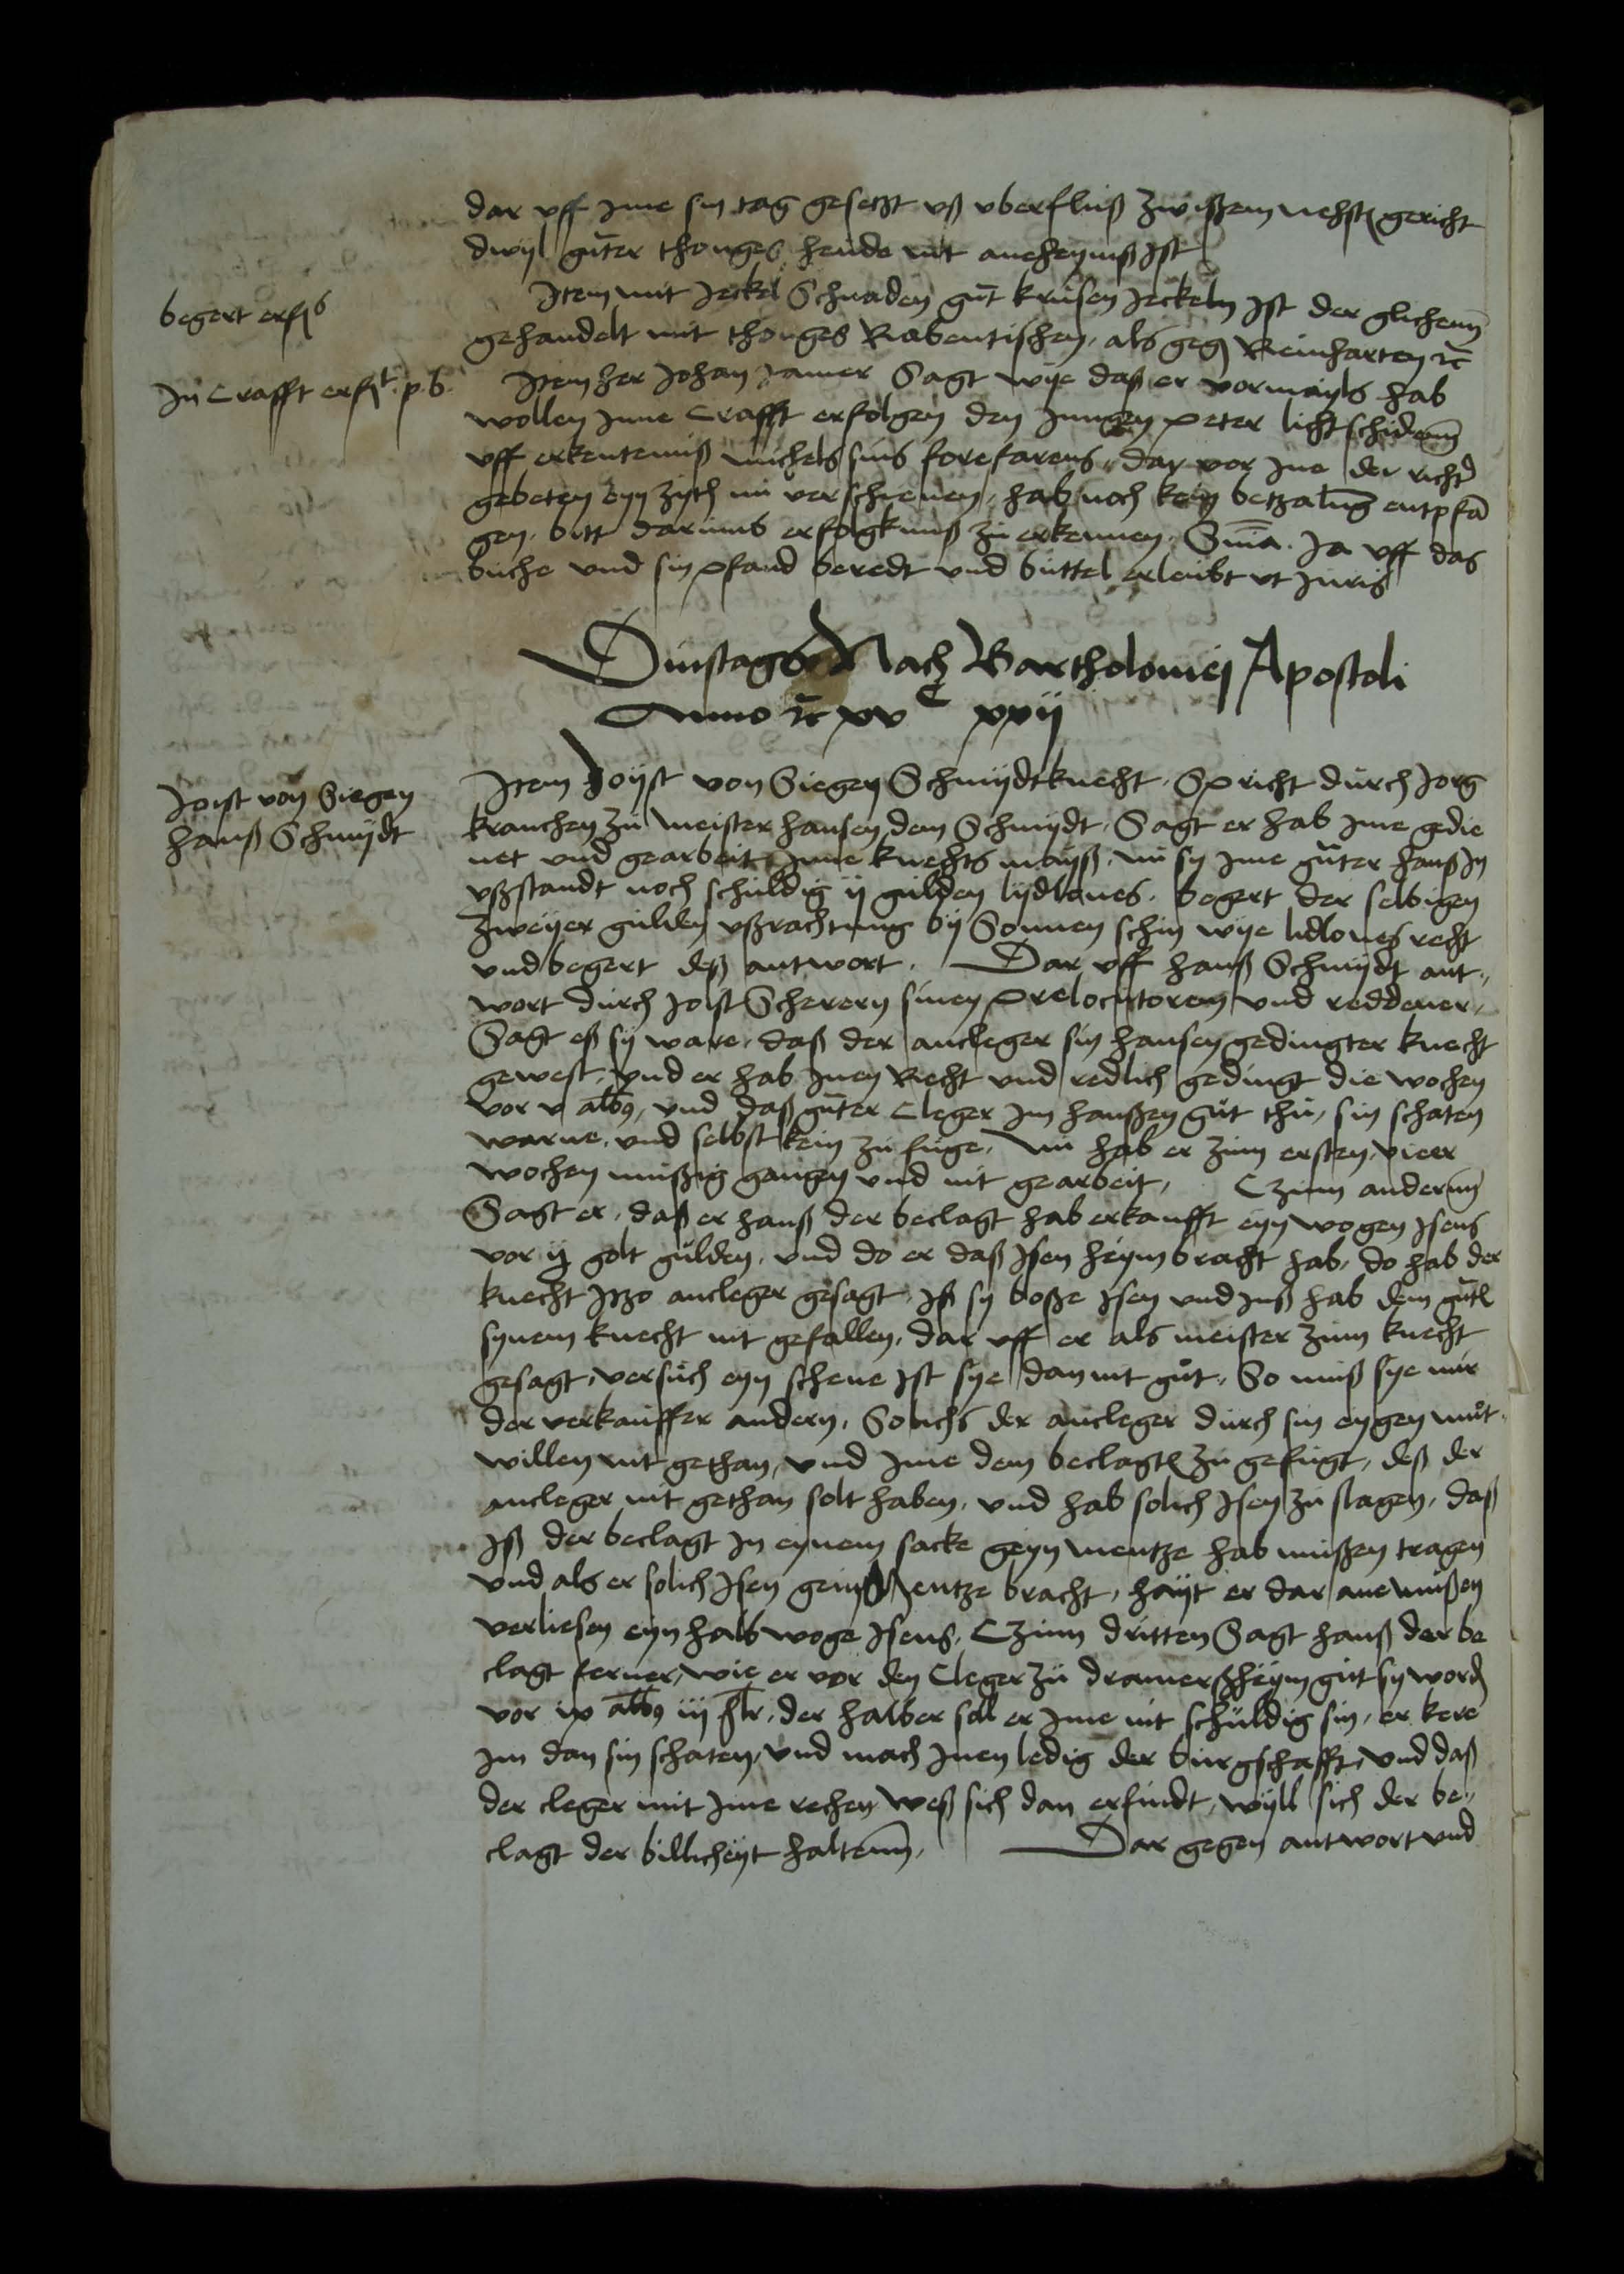 dar uff Ime sin tag gesetzt uß uberfluß zwißem nehst gericht
dwyl guter thonges heude nit aneheymß Ist
begert erfß
Item mit Jeckel Schnaden gut krusen Jeckeln Ist der glichenn
gehandelt mit thonges Rabentischen, als geg Reinharten rc
In Crafft erfgt p. b.
Item her Johan Jamer Sagt wye daß er vormayls hab
wollen Inne Crafft erfolgen den Jungen peter lichtschidenn
uff erkentemiß michels sins forefarens, dar vor Ine der richt
gebeten eyn zyth nu verschienen, hab noch keyn betzalung entpfa
gen, bitt darumb erfolgkniß zu erkennen. Snia. Ja uff das
buche und sin pfand beredt und buttel erleubt ut Juris
Dinstags Nach Bartholomej Apostoli
Anno rc xvc xxij
Joist von Siegen
hanß Schmydt
Item Joyst von Siegen Schmydtknecht. Spricht durch Jorg
kranchen zu meister hansen dem Schmydt. Sagt er hab Ime gedie
net und gearbeit Inne knechts mayß, nu sy Ime guter hanß In
ußstandt noch schuldig ij gulden lydlones. begert der selbigen
zweyer gulden ußrachtung by Sonnen schin wye lidlones recht
und begert deß antwort. Dar uff hanß Schmydt ant„
wort durch Joist Scherern sinen prelocutorem und reddener,
Sagt eß sy ware, daß der ancleger sin hansen gedingter knecht
gewest, und er hab Inen Recht und redlich gedingt die wochen
vor v albq, und daß guter Cleger Im hanßen gut thu, sin schaten
warne, und selbst kein zu fuge, nu hab er zum ersten vieer
wochen mußig gangen und nit gearbeit, Czum andernn
Sagt er, daß er hanß der beclagt hab erkaufft eyn wogen Isens
vor ij golt gulden, und do er daß Isen heym bracht hab, do hab der
knecht Itzo ancleger gesagt, Iß sy boße Isen und Inß hab dem gutl
synem knecht nit gefallen, dar uff er als meister zum knecht
gesagt, versuch eyn schene Ist sye dan nit gut, So muß sye mir
der verkauffer andern, Solichs der ancleger durch sin eygen mut„
willen nit gethan, und Ime dem beclagt zu gefugt, deß der
ancleger nit gethan solt haben, und hab solich Isen zu slagen, daß
Iß der beclagt In eynem sacke geyn mentze hab mußen tragen
und als er solich Isen gein Mentze bracht, hayt er dar ane mußen
verliesen eyn halb woge Isens, Czum dritten Sagt hanß der be
clagt ferner, wie er vor den Cleger zu dramerßheym gut sy word
vor ix albq iij hlr, der halber soll er Ime nit schuldig sin, er kere
Im dan sin schaten, und mach Inen ledig der burgschafft, und daß
der cleger mit Ime rechen, weß sich dan erfindt, wyll sich der be„
clagt der billicheyt haltenn, Dar gegen antwort und